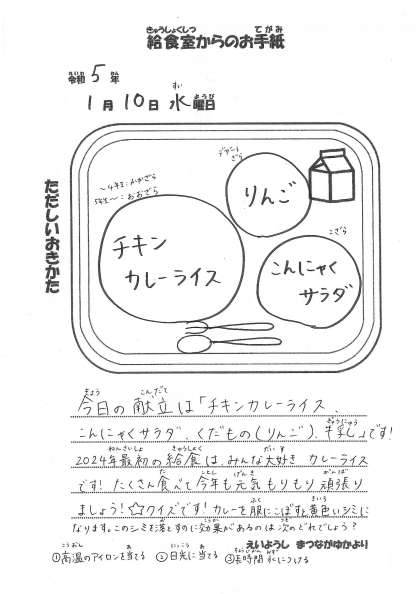 給食室からのお手紙
令和 5 年
1 月 10 日 水 曜日
ただしいおきかた
～4年生：おおざら
5年生～：おおざら
チキン
カレーライス
デザート
ざら
りんご
こざら
こんにゃく
サラダ
今日の献立は「チキンカレーライス、
こんにゃくサラダ くだもの(りんご)、牛乳」です!
2024年最初の給食はみんな大好き カレーライス
です! たくさん食べて今年も元気もりもり頑張り
ましょう!☆クイズです!カレーを服にこぼすと黄色いシミに
なります。このシミを落とすのに効果があるのは次のどれでしょう?
えいようし まつながゆかより
①高温のアイロンを当てる ②日光に当てる ③長時間水につける